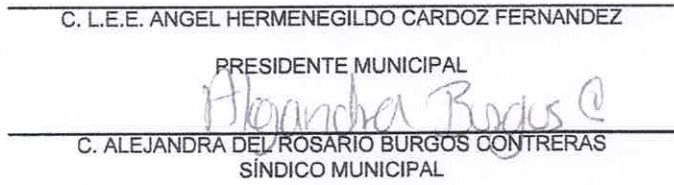 C. L.E.E. ANGEL HERMENEGILDO CARDOZ FERNANDEZ
PRESIDENTE MUNICIPAL
Alejandra Burgos C
C. ALEJANDRA DEL ROSARIO BURGOS CONTRERAS
SÍNDICO MUNICIPAL